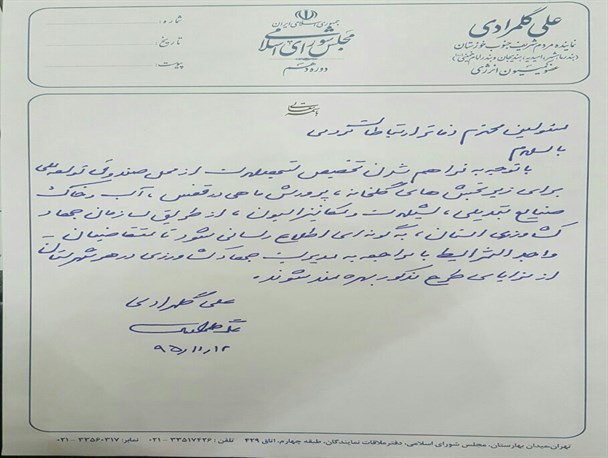 علی گلمرادی
نماینده مردم شریف جنوب خوزستان
(بندر ماهشهر، امیدیه، هندیجان و بندر امام خمینی(ره))
عضو کمیسیون انرژی
جمهوری اسلامی ایران
مجلس شورای اسلامی
دوره دهم
شماره:
تاریخ:
پیوست:
مسئولین محترم دفاتر ارتباطات مردمی
با سلام
با توجه به فراهم شدن تخصیص تسهیلات از محل صندوق توسعه ملی
برای زیربخش های گلخانه، پرورش ماهی در قفس، آب و خاک
صنایع تبدیلی، شیلات و مکانیزاسیون، از طریق سازمان جهاد
کشاورزی استان، به گونه ای اطلاع رسانی شود تا متقاضیان
واجد الشرایط با مراجعه به مدیریت جهاد کشاورزی در هر شهرستان
از مزایای طرح مذکور بهره مند شوند.
علی گلمرادی
۹۵/۱۱/۱۲
تهران، میدان بهارستان، مجلس شورای اسلامی، دفتر ملاقات نمایندگان، طبقه چهارم، اتاق ۴۲۹ تلفن: ۳۳۵۱۷۴۲۶ - ۰۲۱ نمابر: ۳۳۵۶۰۳۱۷ - ۰۲۱